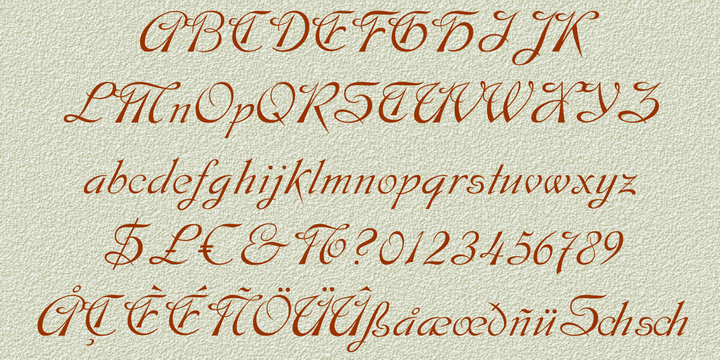 ABCDEFGHIJK
LMnOpQRSTUVWXYZ
abcdefghijklmnopqrstuvwxyz
$£€&?0123456789
ÅÇÈÉÑÖÜÛßåæœðñüSchsch